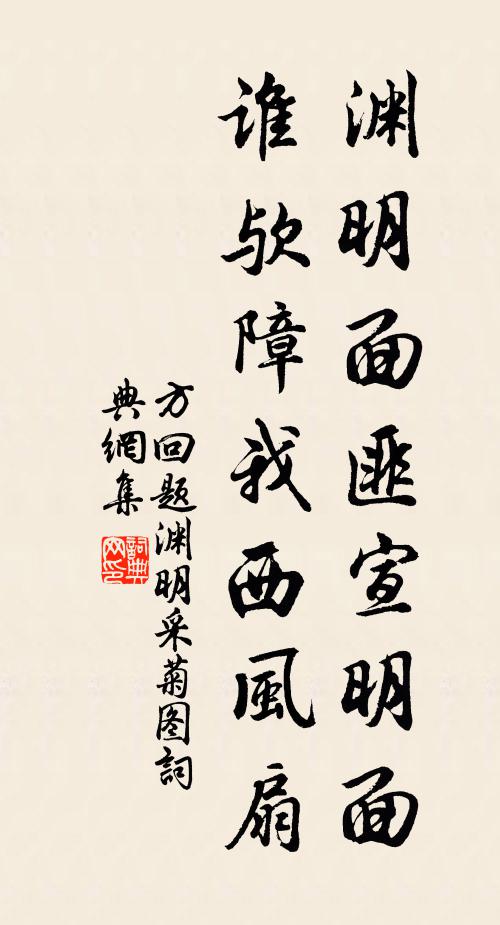 渊明面匪宣明面
谁欤障我西風扇
方回题渊明采菊图詞
典網集
詞典
网印